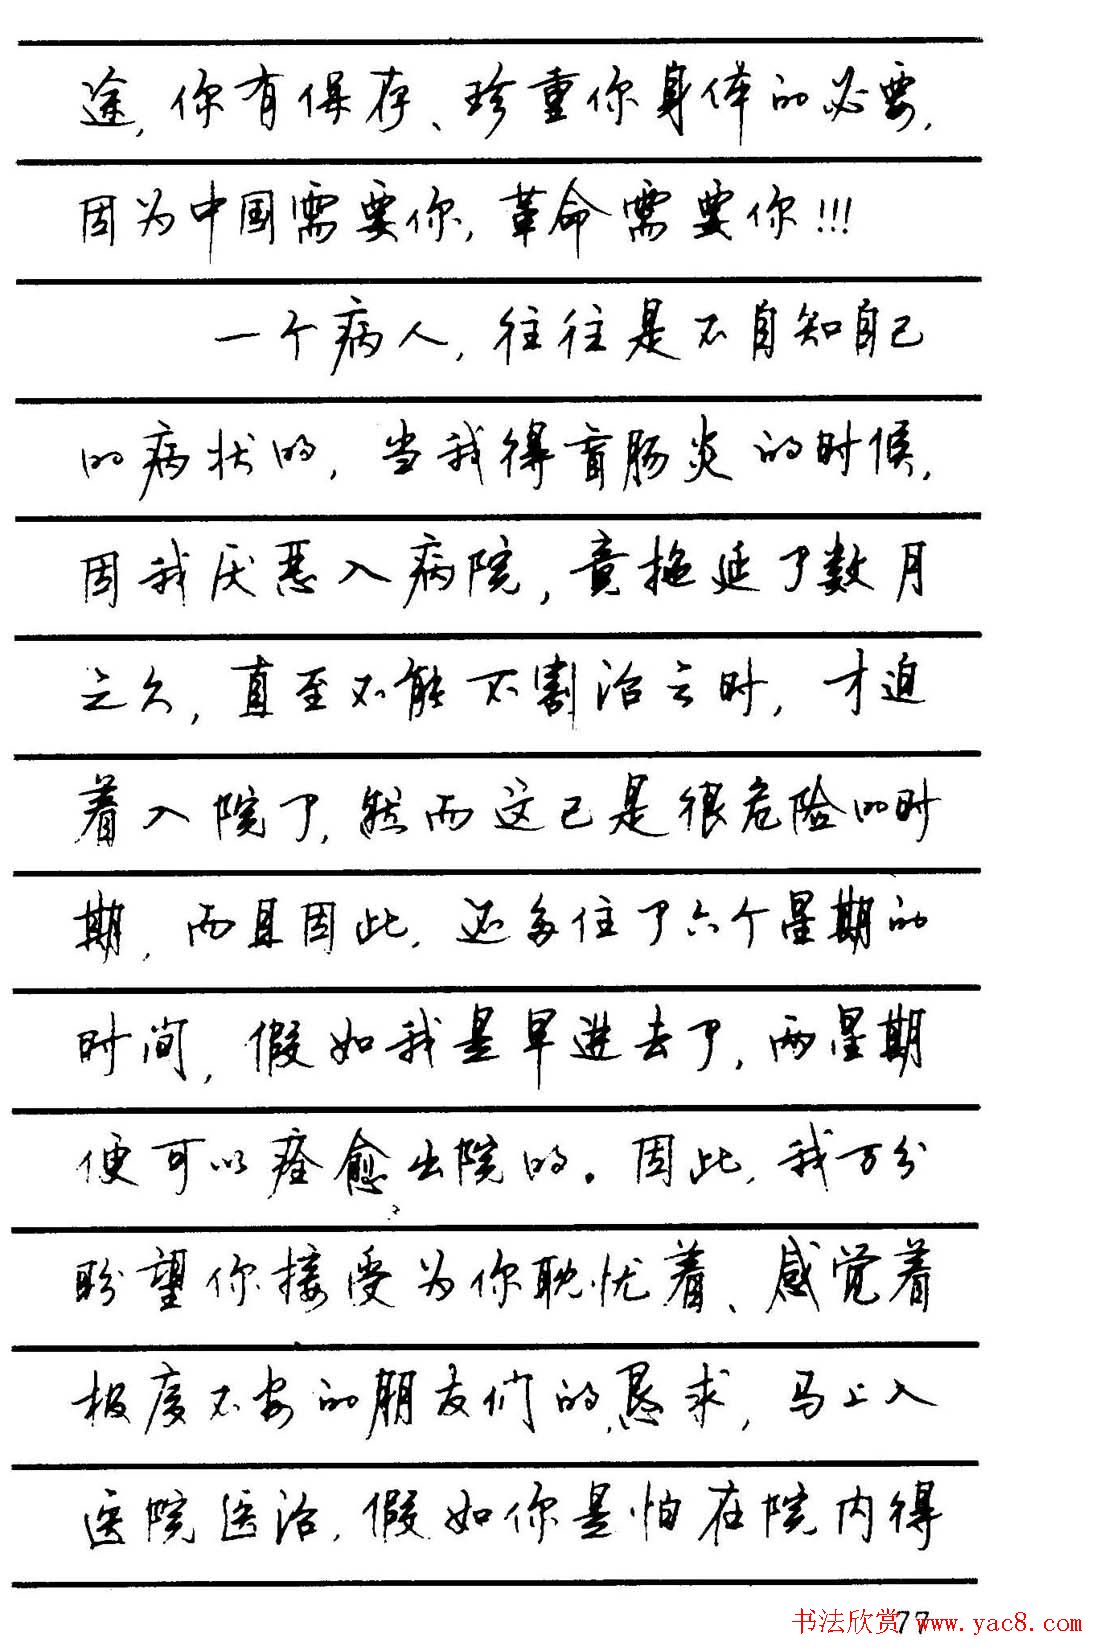 途，你有保存、珍重你身体的必要，
因为中国需要你，革命需要你!!!
一个病人，往往是不自知自己
的病状的，当我得盲肠炎的时候，
因我厌恶入病院，竟拖延了数月
之久，直至不能不割治之时，才迫
着入院了，然而这已是很危险的时
期，而且因此，还多住了六个星期的
时间，假如我是早进去了，两星期
便可以痊愈出院的。因此，我万分
盼望你接受为你耽忧着、感觉着
极度不安的朋友们的恳求，马上入
医院医治，假如你是怕在院内得
77
书法欣赏 www.yac8.com